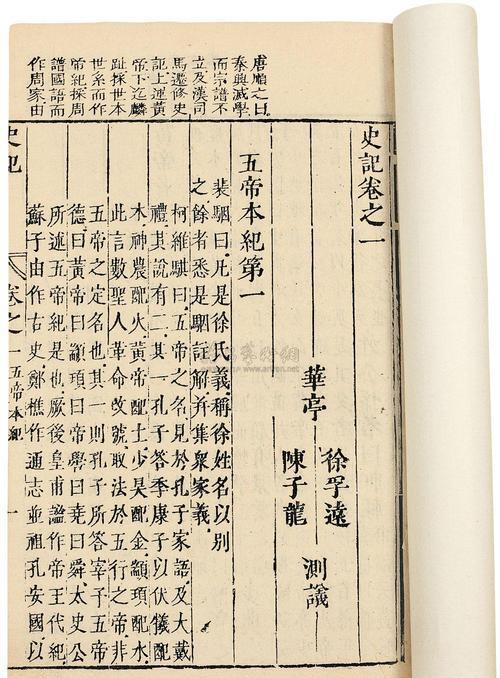 唐順之曰
秦興滅學
而宗譜不
立及漢司
馬遷修史
記上黃
帝下迄麟
趾採世本
世系而作
帝紀採周
譜國語而
作周家由
史記卷之一
華亭
徐孚遠
陳子龍
測議
五帝本紀第一
裴駰曰凡是徐氏義稱徐姓名以別
之餘者悉是駰註解并集衆家義
柯維騏曰五帝之名見於孔子家語及大戴
禮其說有二其一孔子答季康子以伏羲配
木神農配火黃帝配土少昊配金顓頊配水
此言數聖人革命改號取法於五行之帝非
五帝之定名也其一則孔子所答宰予五帝
德曰黃帝曰顓頊曰帝嚳曰堯曰舜太史公
所述五帝紀是也厥後皇甫謐作帝王代紀
蘇子由作古史鄭樵作通志並祖孔安國以
史記
卷之一
五帝本紀
一